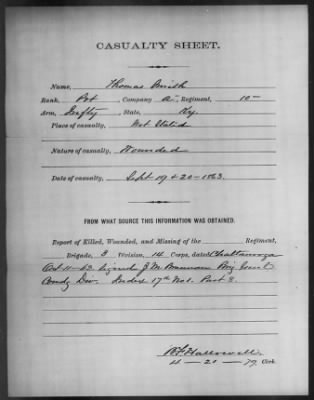 CASUALTY SHEET.
Name, Thomas Smith
Rank, Pvt Company A, Regiment, 10
Arm, Infty State, Ky.
Place of casualty, Not Stated
Nature of casualty, Wounded
Date of casualty, Sept 19 & 20 - 1863.
FROM WHAT SOURCE THIS INFORMATION WAS OBTAINED.
Report of Killed, Wounded, and Missing of the Regiment,
Brigade, 3 Division, 14 Corps, dated Chattanooga
Oct 11 - 63 Signed J. M. Brannan Brig Genl
Comdg Div. Index 17th Vol. Part 8.
Hallowell
4 - 20 - 79 Clerk.